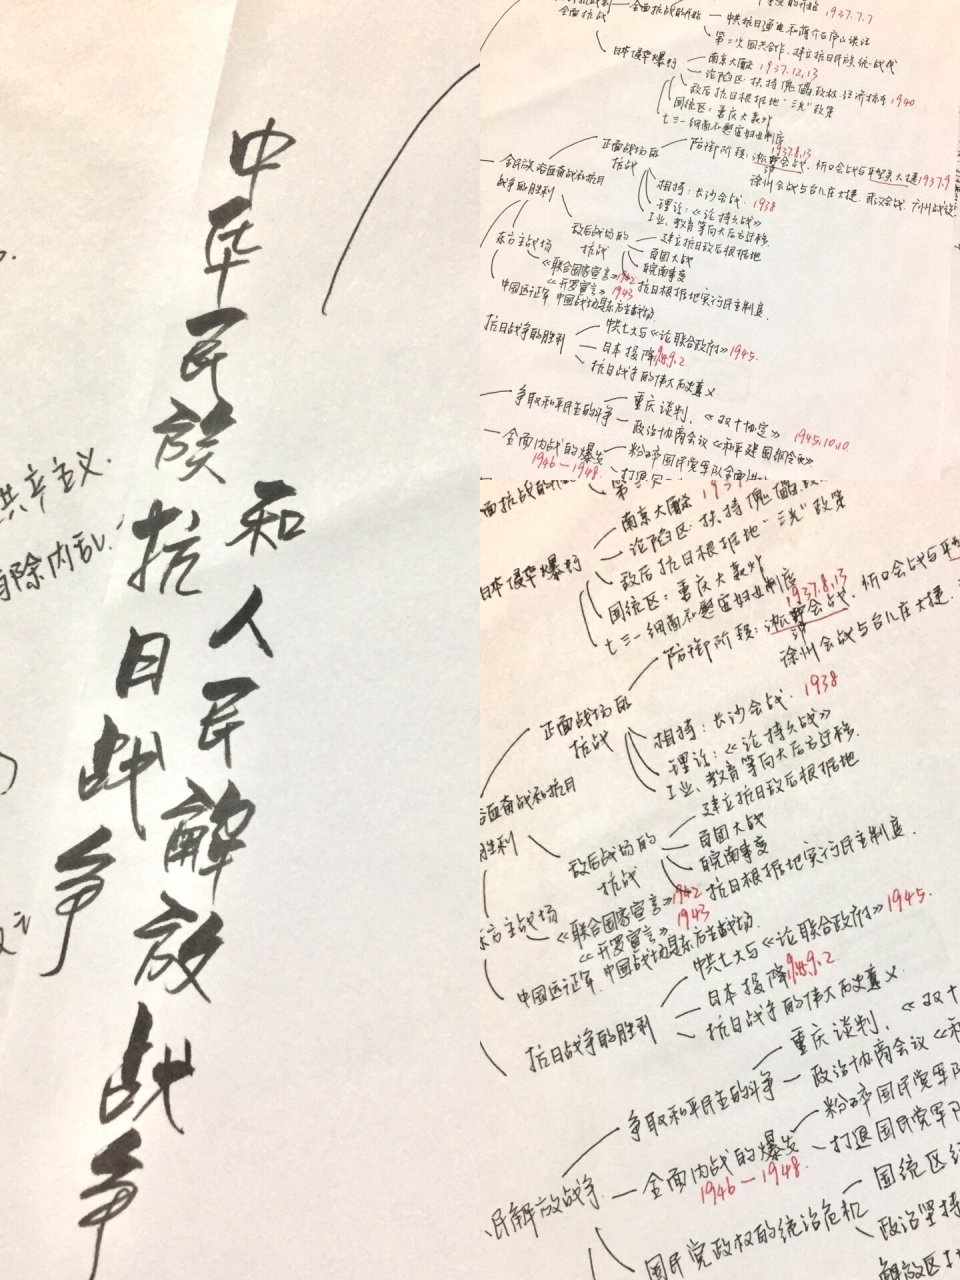 中华民族抗日战争
和人民解放战争
共产主义.
除内乱.
全面抗战
全面抗战的开始
1937.7.7
中共抗日通电和蒋介石庐山谈话
第二次国共合作、建立抗日民族统一战线
日本侵华暴行
南京大屠杀 1937.12.13
沦陷区: 扶持傀儡政权、经济掠夺 1940
敌后抗日根据地 "三光"政策
国统区: 重庆大轰炸
七三一细菌和慰安妇业制度
正面战场的
抗战
防御阶段: 淞沪会战、忻口会战与平型关大捷 1937.9
1937.8.13
徐州会战与台儿庄大捷、武汉会战、广州战役
全民族浴血奋战和抗日
战争的胜利
相持: 长沙会战. 1938
理论:《论持久战》
工业、教育等向大后方迁移.
敌后战场的
抗战
建立抗日敌后根据地
百团大战
皖南事变
抗日根据地实行民主制度.
东方主战场
《联合国家宣言》1942
《开罗宣言》 1943
中国远征军 中国战场是东方主战场
抗日战争的胜利
中共七大与《论联合政府》1945.
日本投降
抗日战争的伟大历史意义
争取和平民主的斗争
重庆谈判、《双十协定》 1945.10.10
政治协商会议《和平建国纲领》
全面内战的爆发
1946-1948.
粉碎国民党军队全面进
打退
面抗战的
南京大屠杀
日本侵华暴行
沦陷区: 扶持傀儡
敌后抗日根据地 "三光"政策
国统区: 重庆大轰炸
七三一细菌和慰安妇业制度
1937.8.13
防御阶段: 淞沪会战、忻口会战与平
徐州会战与台儿庄大捷、
正面战场的
抗战
相持: 长沙会战. 1938
理论:《论持久战》
工业、教育等向大后方迁移.
浴血奋战和抗日
胜利
敌后战场的
抗战
建立抗日敌后根据地
百团大战
皖南事变
抗日根据地实行民主制度.
东方主战场
《联合国家宣言》1942
《开罗宣言》 1943
中国远征军 中国战场是东方主战场.
抗日战争的胜利
中共七大与《论联合政府》1945.
日本投降
抗日战争的伟大历史意义
民解放战争
争取和平民主的斗争
重庆谈判、《双十
政治协商会议《和
全面内战的爆发
1946-1948.
粉碎国民党军队
打退国民党军队
国民党政权的统治危机
国统区经
政治坚持
解放区土